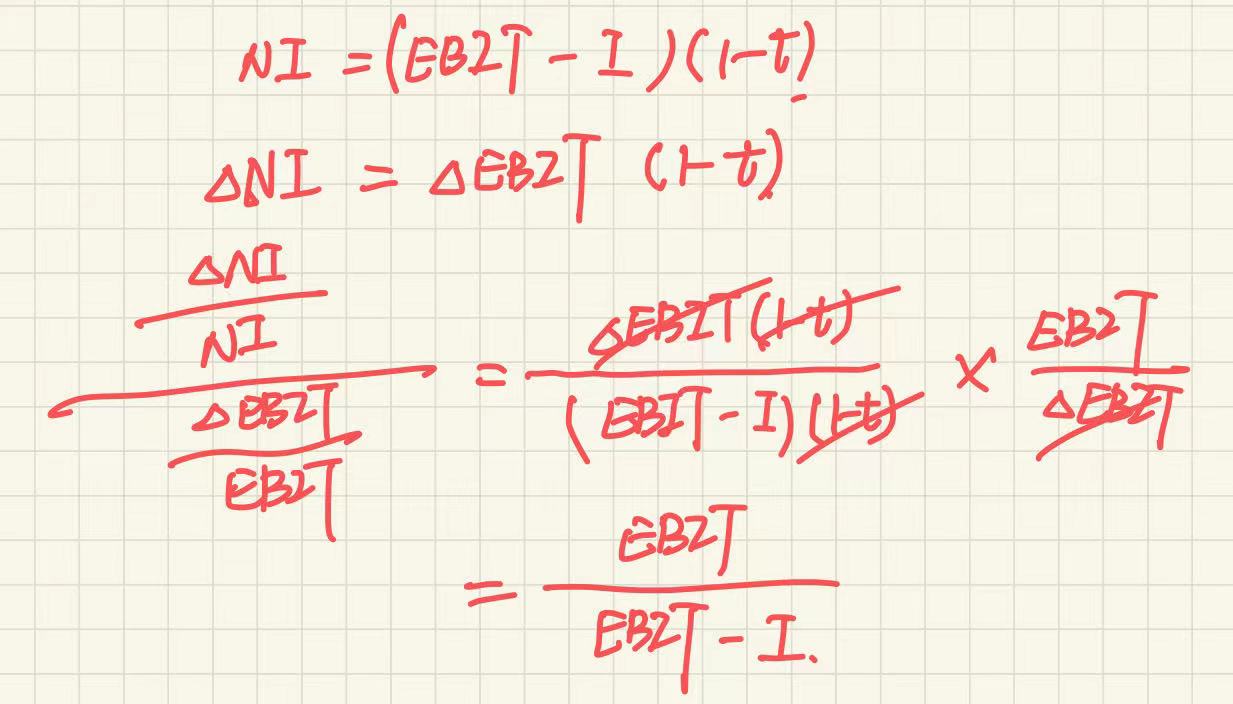 NI = (EBIT - I)(1-t)
ΔNI = ΔEBIT (1-t)
ΔNI / NI / ΔEBIT / EBIT = ΔEBIT(1-t) / (EBIT - I)(1-t) × EBIT / ΔEBIT
= EBIT / EBIT - I.